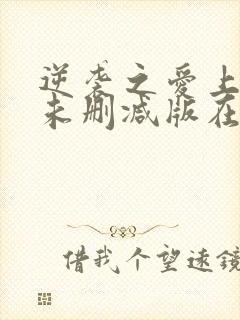 逆袭之爱上
未删减版在
借我个望远镜